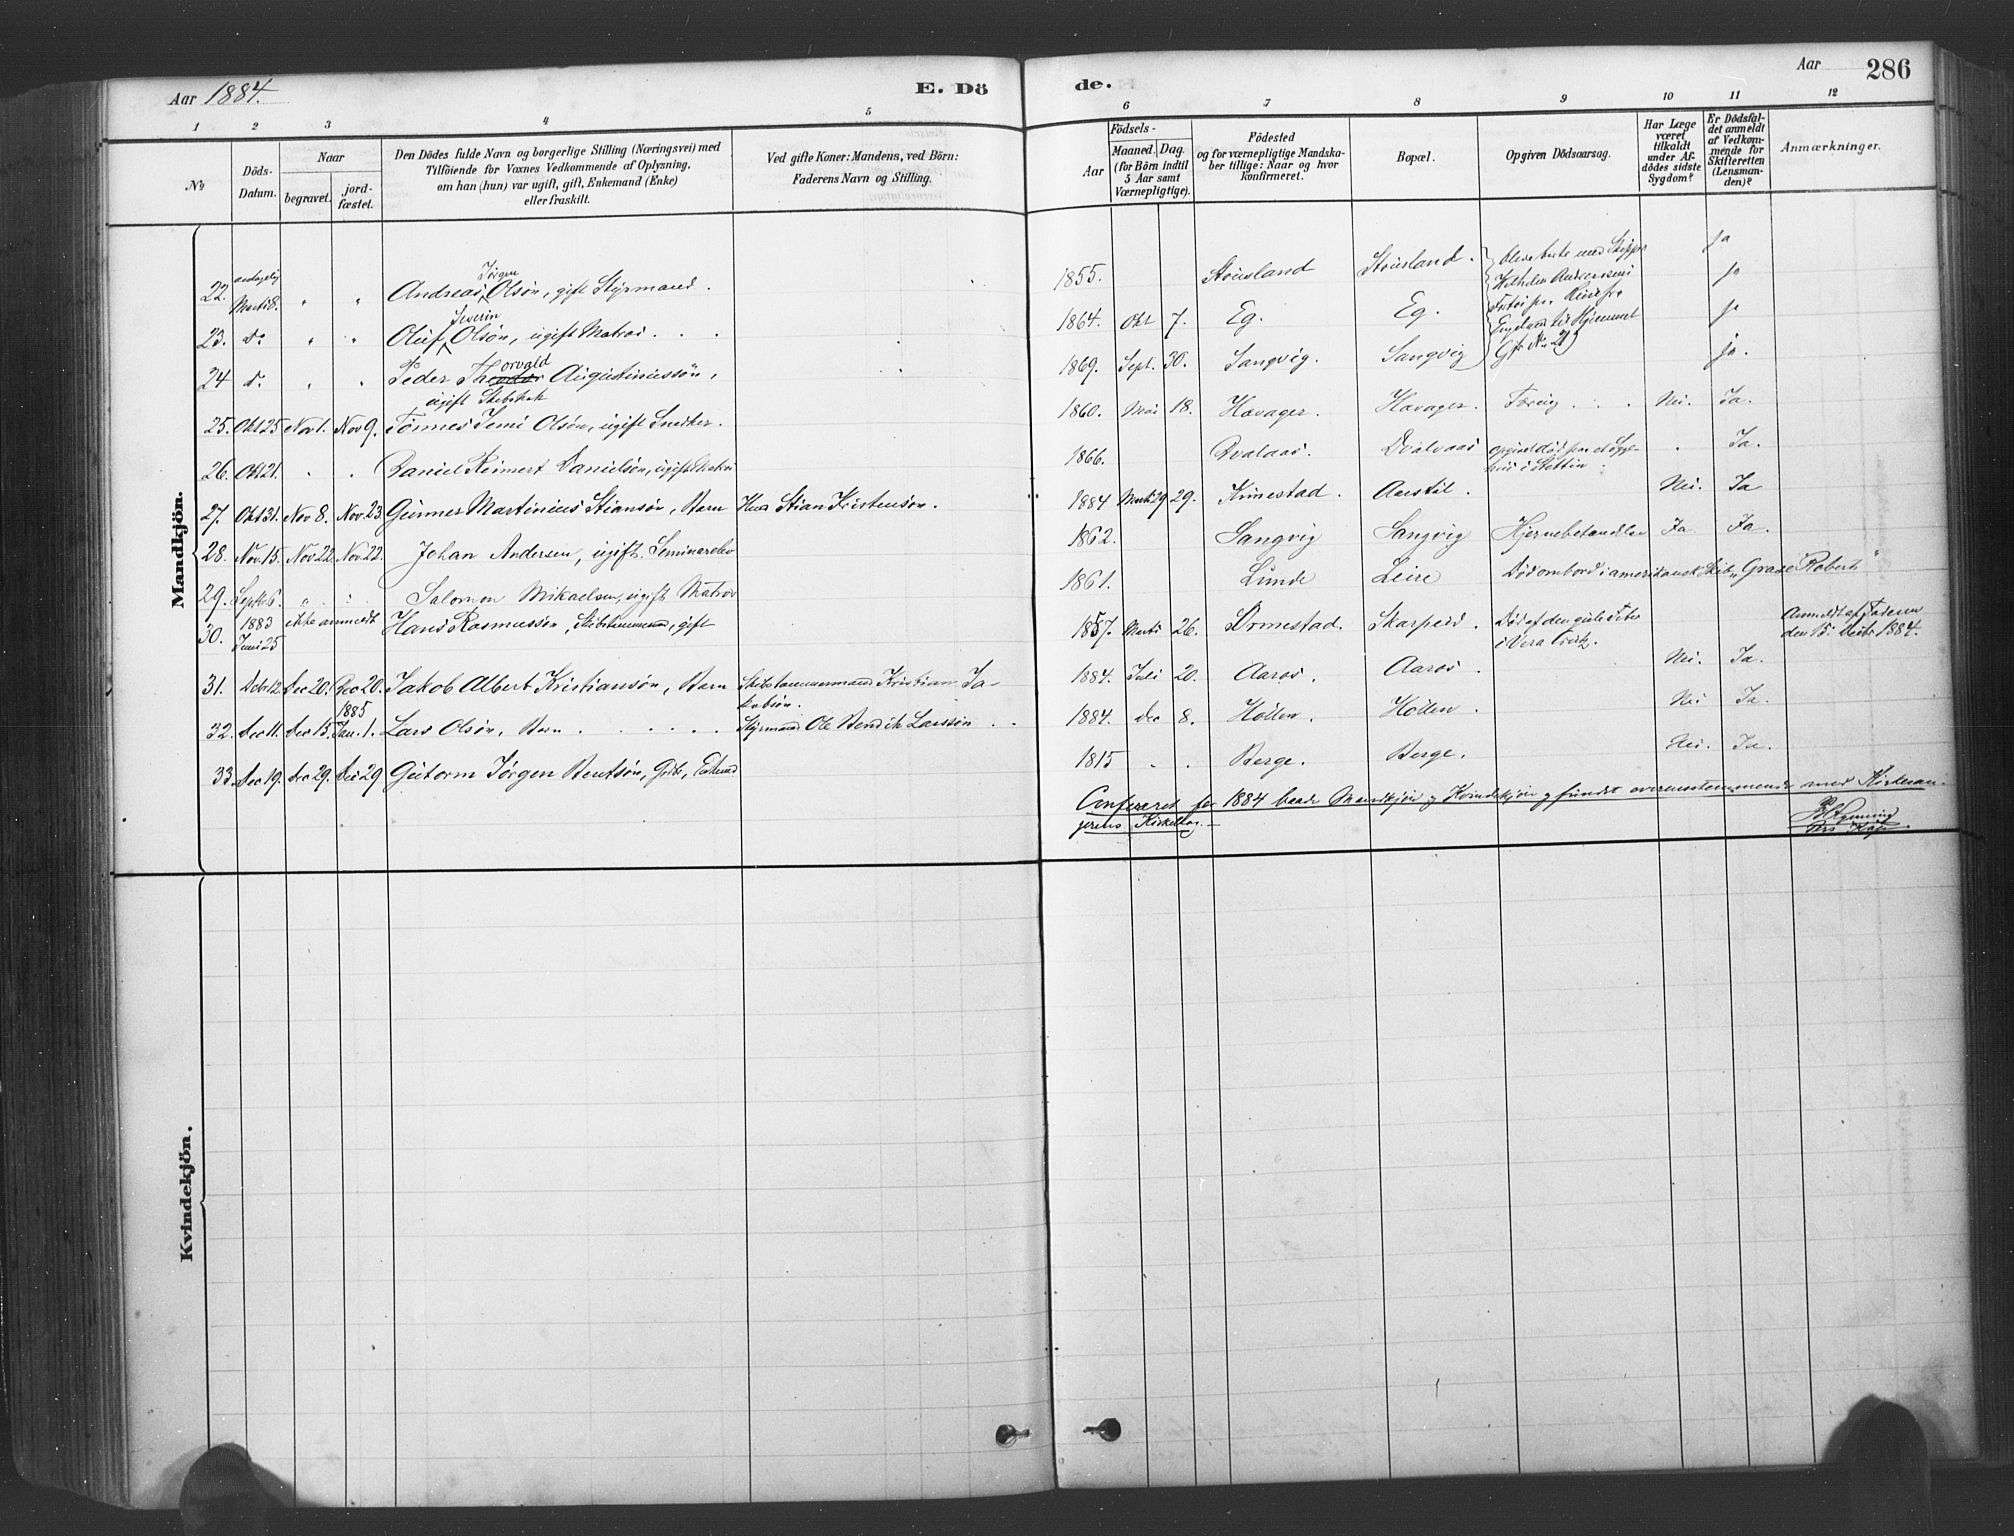 Aar 1884.
E. Dö
de.
Aar
286
1 2 3 4 5
6 7 8 9 10 11 12
No
Döds-Datum.
Naar
begravet.
jord-fæstet.
Den Dödes fulde Navn og borgerlige Stilling (Næringsvei) med
Tilföiende för Voxnes Vedkommende af Oplysning,
om han (hun) var ugift, gift, Enkemand (Enke)
eller fraskilt.
Ved gifte Koner: Mandens, ved Börn:
Faderens Navn og Stilling.
Födsels-
Aar
Maaned. Dag.
(for Börn indtil
5 Aar samt
Værnepligtige).
Födested
og for værnepligtige Mandska-
ber tillige: Naar og hvor
konfirmeret.
Bopæl.
Opgiven Dödsaarsag.
Har Læge
været
tilkaldt
under Af-
dödes sidste
Sygdom?
Er Dödsfal-
det anmeldt
af Vedkom-
mende for
Skifteretten
(Lensman-
den)?
Anmærkninger.
Mandkjön.
22. Marts 8. " " Andreas Jörgen Olsön, gift Styrmand. 1855. Stousland Stousland. ja
23. do " " Oluf Severin Olsön, ugift Matros 1864. Okt 7. Eg. Eg. ja
24 d. " " Peder Thorvald Augustinussön, 1869. Sept. 30. Sangvig. Sangvig ja
ugift Skibskok
blev borte med Skipper
Wilhelm
Reise fra
England til Hjemmet
ja.
25. Okt 25 Nov 1. Nov 9. Tönnes Olsön, ugift Snedker. 1860. Mai 18. Havager. Havager. Tæring Nei. Ja.
26. Okt 21. " " Daniel Reinert Danielsön, ugift Matros 1866. Dvalaas. Ja.
i Stettin
27. Okt 31. Nov 8. Nov. 23 Gunner Martinius Stiansön, Barn Stian Kristensön. 1884 Marts 29. Kimestad. Aarstöl. Nei. Ja
28. Nov. 15. Nov. 22. Nov. 22. Johan Andersen, ugift. Seminarelev 1862. Sangvig Sangvig Ja. Ja.
29. Septb 6. " " Salomon Mikaelsen, ugift Matros 1861. Lunde Leire Död ombord i amerikansk Skib „Grace Robert“
30. 1883 Juni 25 ikke anmeldt Hans Rasmussön, Skibstömmermand, gift 1857. Marts 26. Ormestad. Skarpeid. Död af den gule Feber
i Vera Crutz.
Anmeldt af Faderen
den 15. Decbr 1884.
31. Decbr 12. Dec 20. Dec 20. Jakob Albert Kristiansön, Barn Skibstömmermand Kristian Ja-
kobsön. 1884. Juli 20. Aaros. Aaros. Nei. Ja.
32. Dec 11. Dec 15. 1885 Jan. 1. Lars Olsön, Barn Styrmand Ole Bendik Larssön 1884. Dec 8. Höllen. Höllen. Nei Ja.
33. Dec 19. Dec 29. Dec 29 Gutorm Jörgen Bentsön, Gbr., Enkemd 1815 " " Berge. Berge. Nei. Ja.
Confereret for 1884 baade Mandkjön og Kvindekjön og fundet overensstemmende med Kirkesan-
gerens Kirkebog.
Kvindekjön.